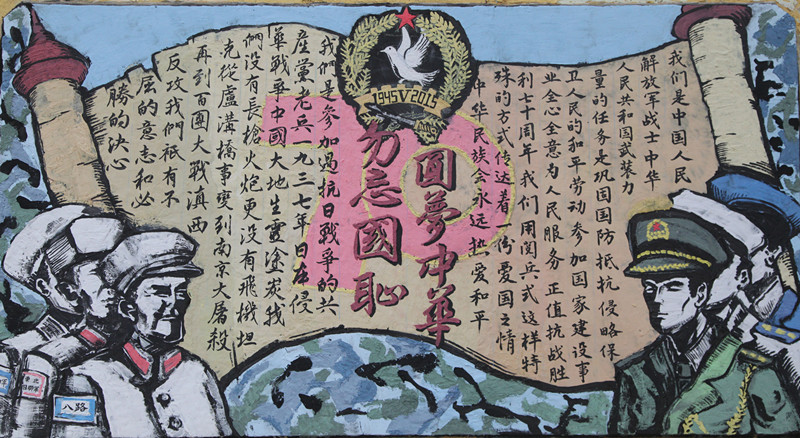 我们是中国人民
解放军战士中华
人民共和国武装力
量的任务是巩固国防抵抗侵略保
卫人民的和平劳动参加国家建设事
业全心全意为人民服务正值抗战胜
利七十周年我们用阅兵式这样特
殊的方式传述着一份爱国之情
中华民族会永远热爱和平
1945V2015
70
圓夢中華
勿忘國恥
我們是參加過抗日戰爭的共
產黨老兵一九三七年日在侵
華戰爭中國大地生靈塗炭我
們没有長槍火炮更没有飛機坦
克從盧溝橋事變到南京大屠殺
再到百團大戰滇西
反攻我們衹有不
屈的意志和必
勝的決心
八路